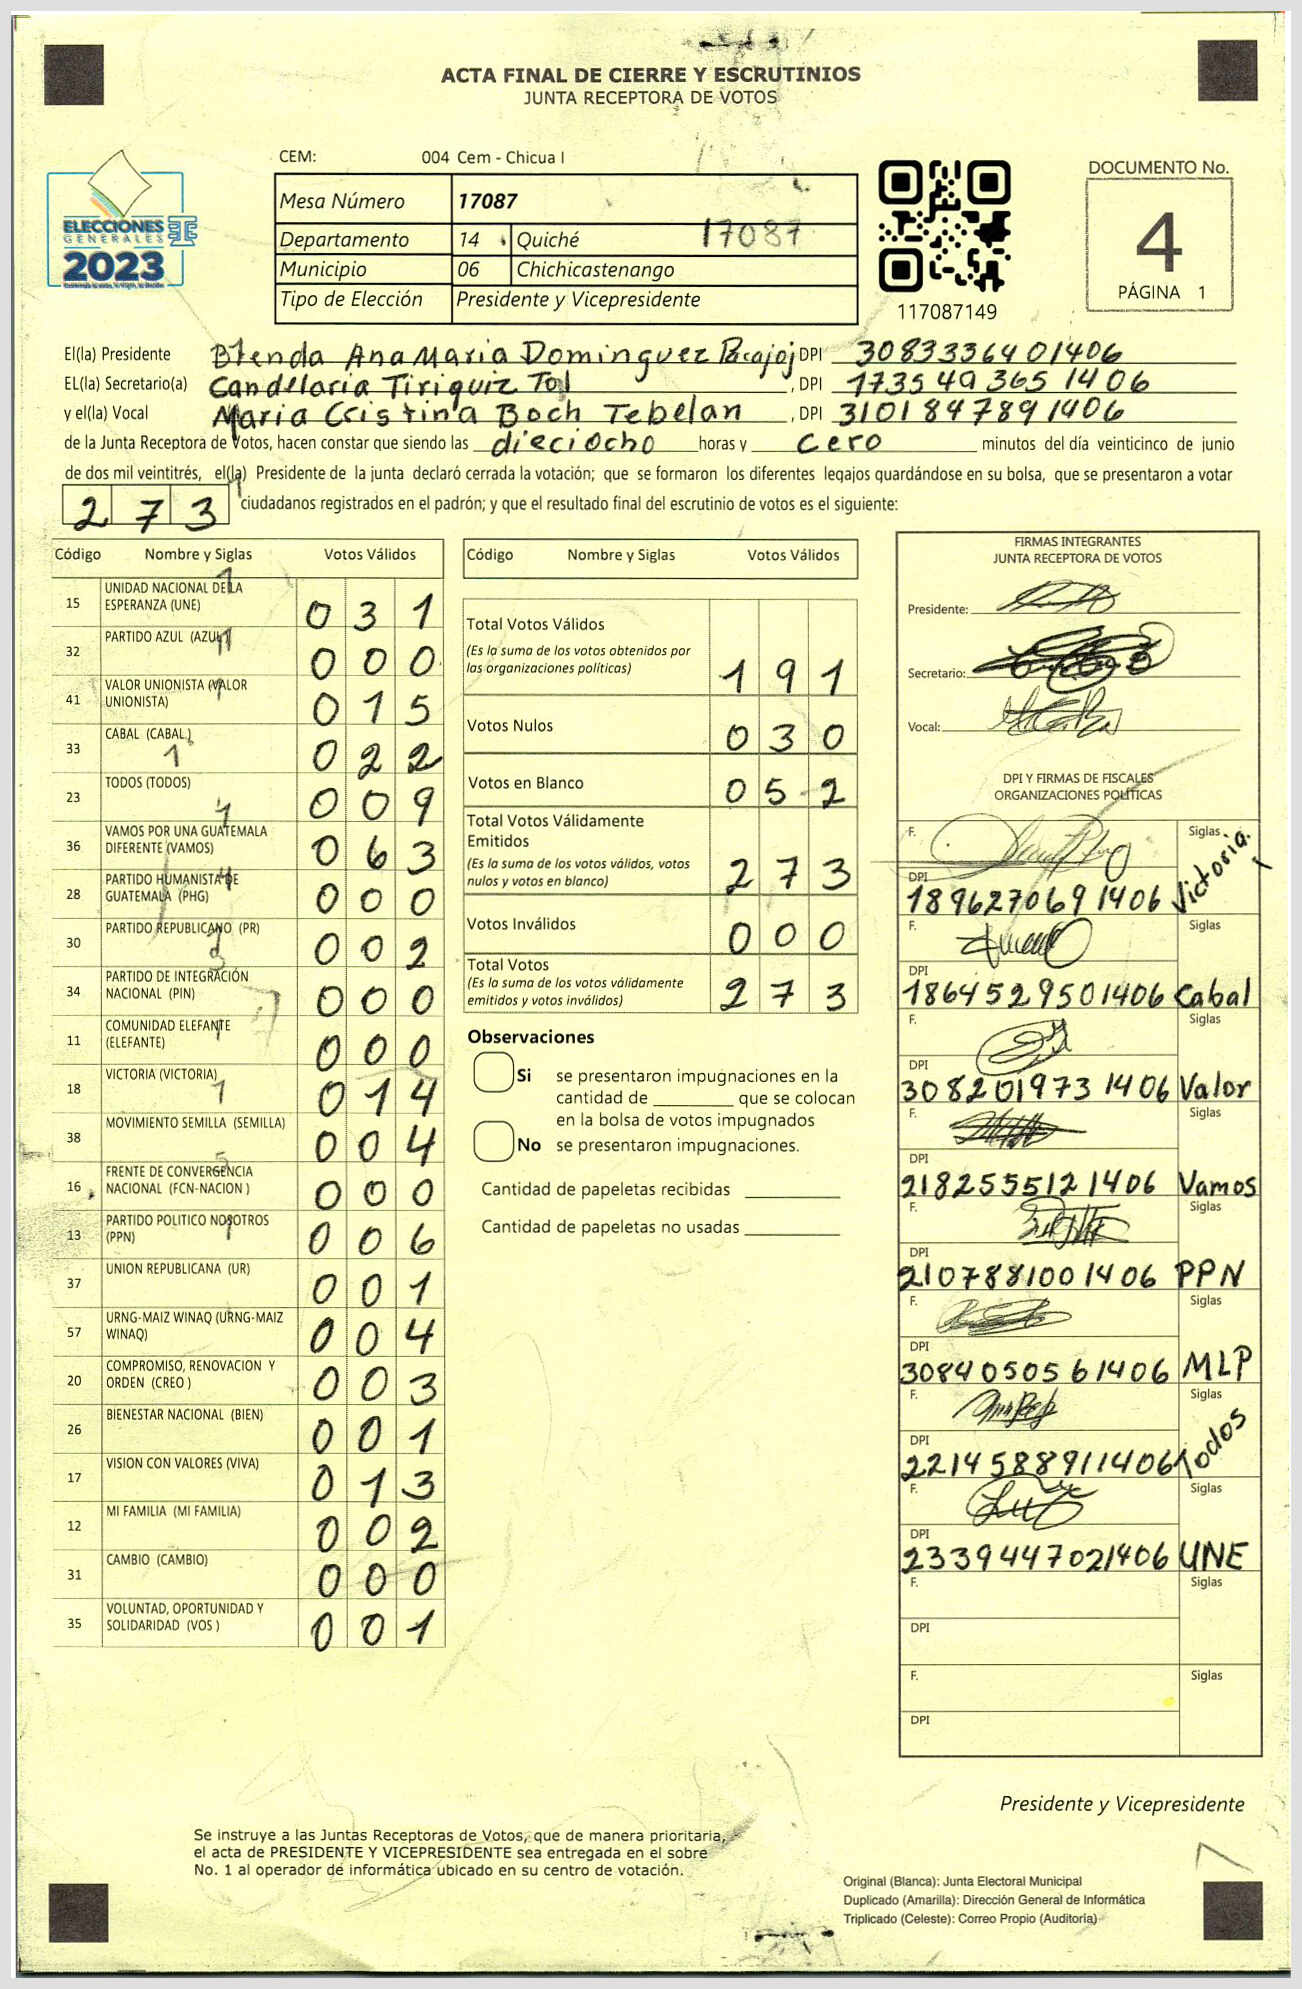 ACTA FINAL DE CIERRE Y ESCRUTINIOS
JUNTA RECEPTORA DE VOTOS
CEM: 004 Cem - Chicua I
ELECCIONES
GENERALES
2023
Mesa Número 17087
Departamento 14 Quiché 17087
Municipio 06 Chichicastenango
Tipo de Elección Presidente y Vicepresidente
117087149
DOCUMENTO No.
4
PÁGINA 1
El(la) Presidente Brenda Ana Maria Dominguez Pacajoj DPI 3083336401406
EL(la) Secretario(a) Candelaria Tiriquiz Tol , DPI 1735493651406
y el(la) Vocal Maria Cristina Boch Tebelan , DPI 3101847891406
de la Junta Receptora de Votos, hacen constar que siendo las dieciocho horas y cero minutos del día veinticinco de junio
de dos mil veintitrés, el(la) Presidente de la junta declaró cerrada la votación; que se formaron los diferentes legajos guardándose en su bolsa, que se presentaron a votar
273 ciudadanos registrados en el padrón; y que el resultado final del escrutinio de votos es el siguiente:
Código Nombre y Siglas Votos Válidos
15 UNIDAD NACIONAL DE LA ESPERANZA (UNE) 031
32 PARTIDO AZUL (AZUL) 000
41 VALOR UNIONISTA (VALOR UNIONISTA) 015
33 CABAL (CABAL) 022
23 TODOS (TODOS) 009
36 VAMOS POR UNA GUATEMALA DIFERENTE (VAMOS) 063
28 PARTIDO HUMANISTA DE GUATEMALA (PHG) 000
30 PARTIDO REPUBLICANO (PR) 002
34 PARTIDO DE INTEGRACIÓN NACIONAL (PIN) 000
11 COMUNIDAD ELEFANTE (ELEFANTE) 000
18 VICTORIA (VICTORIA) 014
38 MOVIMIENTO SEMILLA (SEMILLA) 004
16 FRENTE DE CONVERGENCIA NACIONAL (FCN-NACION ) 000
13 PARTIDO POLITICO NOSOTROS (PPN) 006
37 UNION REPUBLICANA (UR) 001
57 URNG-MAIZ WINAQ (URNG-MAIZ WINAQ) 004
20 COMPROMISO, RENOVACION Y ORDEN (CREO ) 003
26 BIENESTAR NACIONAL (BIEN) 001
17 VISION CON VALORES (VIVA) 013
12 MI FAMILIA (MI FAMILIA) 002
31 CAMBIO (CAMBIO) 000
35 VOLUNTAD, OPORTUNIDAD Y SOLIDARIDAD (VOS ) 001
Código Nombre y Siglas Votos Válidos
Total Votos Válidos 191
(Es la suma de los votos obtenidos por
las organizaciones políticas)
Votos Nulos 030
Votos en Blanco 052
Total Votos Válidamente
Emitidos 273
(Es la suma de los votos válidos, votos
nulos y votos en blanco)
Votos Inválidos 000
Total Votos 273
(Es la suma de los votos válidamente
emitidos y votos inválidos)
Observaciones
Si se presentaron impugnaciones en la
cantidad de ________ que se colocan
en la bolsa de votos impugnados
No se presentaron impugnaciones.
Cantidad de papeletas recibidas
Cantidad de papeletas no usadas
FIRMAS INTEGRANTES
JUNTA RECEPTORA DE VOTOS
Presidente:
Secretario:
Vocal:
DPI Y FIRMAS DE FISCALES
ORGANIZACIONES POLÍTICAS
F. Siglas
DPI
1896270691406 Victoria.
F. Siglas
DPI
1864529501406 Cabal
F. Siglas
DPI
3082019731406 Valor
F. Siglas
DPI
2182555121406 Vamos
F. Siglas
DPI
2107881001406 PPN
F. Siglas
DPI
3084050561406 MLP
F. Siglas
DPI
2214588911406 Todos
F. Siglas
DPI
2339447021406 UNE
F. Siglas
DPI
F. Siglas
DPI
Presidente y Vicepresidente
Se instruye a las Juntas Receptoras de Votos, que de manera prioritaria,
el acta de PRESIDENTE Y VICEPRESIDENTE sea entregada en el sobre
No. 1 al operador de informática ubicado en su centro de votación.
Original (Blanca): Junta Electoral Municipal
Duplicado (Amarilla): Dirección General de Informática
Triplicado (Celeste): Correo Propio (Auditoría)